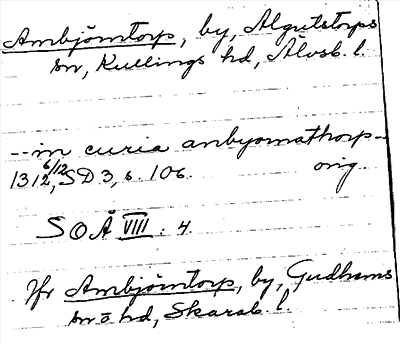 Ambjörntorp, by, Algutstorps
sn, Kullings hd, Älvsb. l.
-- in curia anbyornathorp --
1312 6/12, SD 3, s. 106. orig.
SOÄ VIII. 4.
Jfr Ambjörntorp, by, Gudhems
sn o hd, Skarab. l.